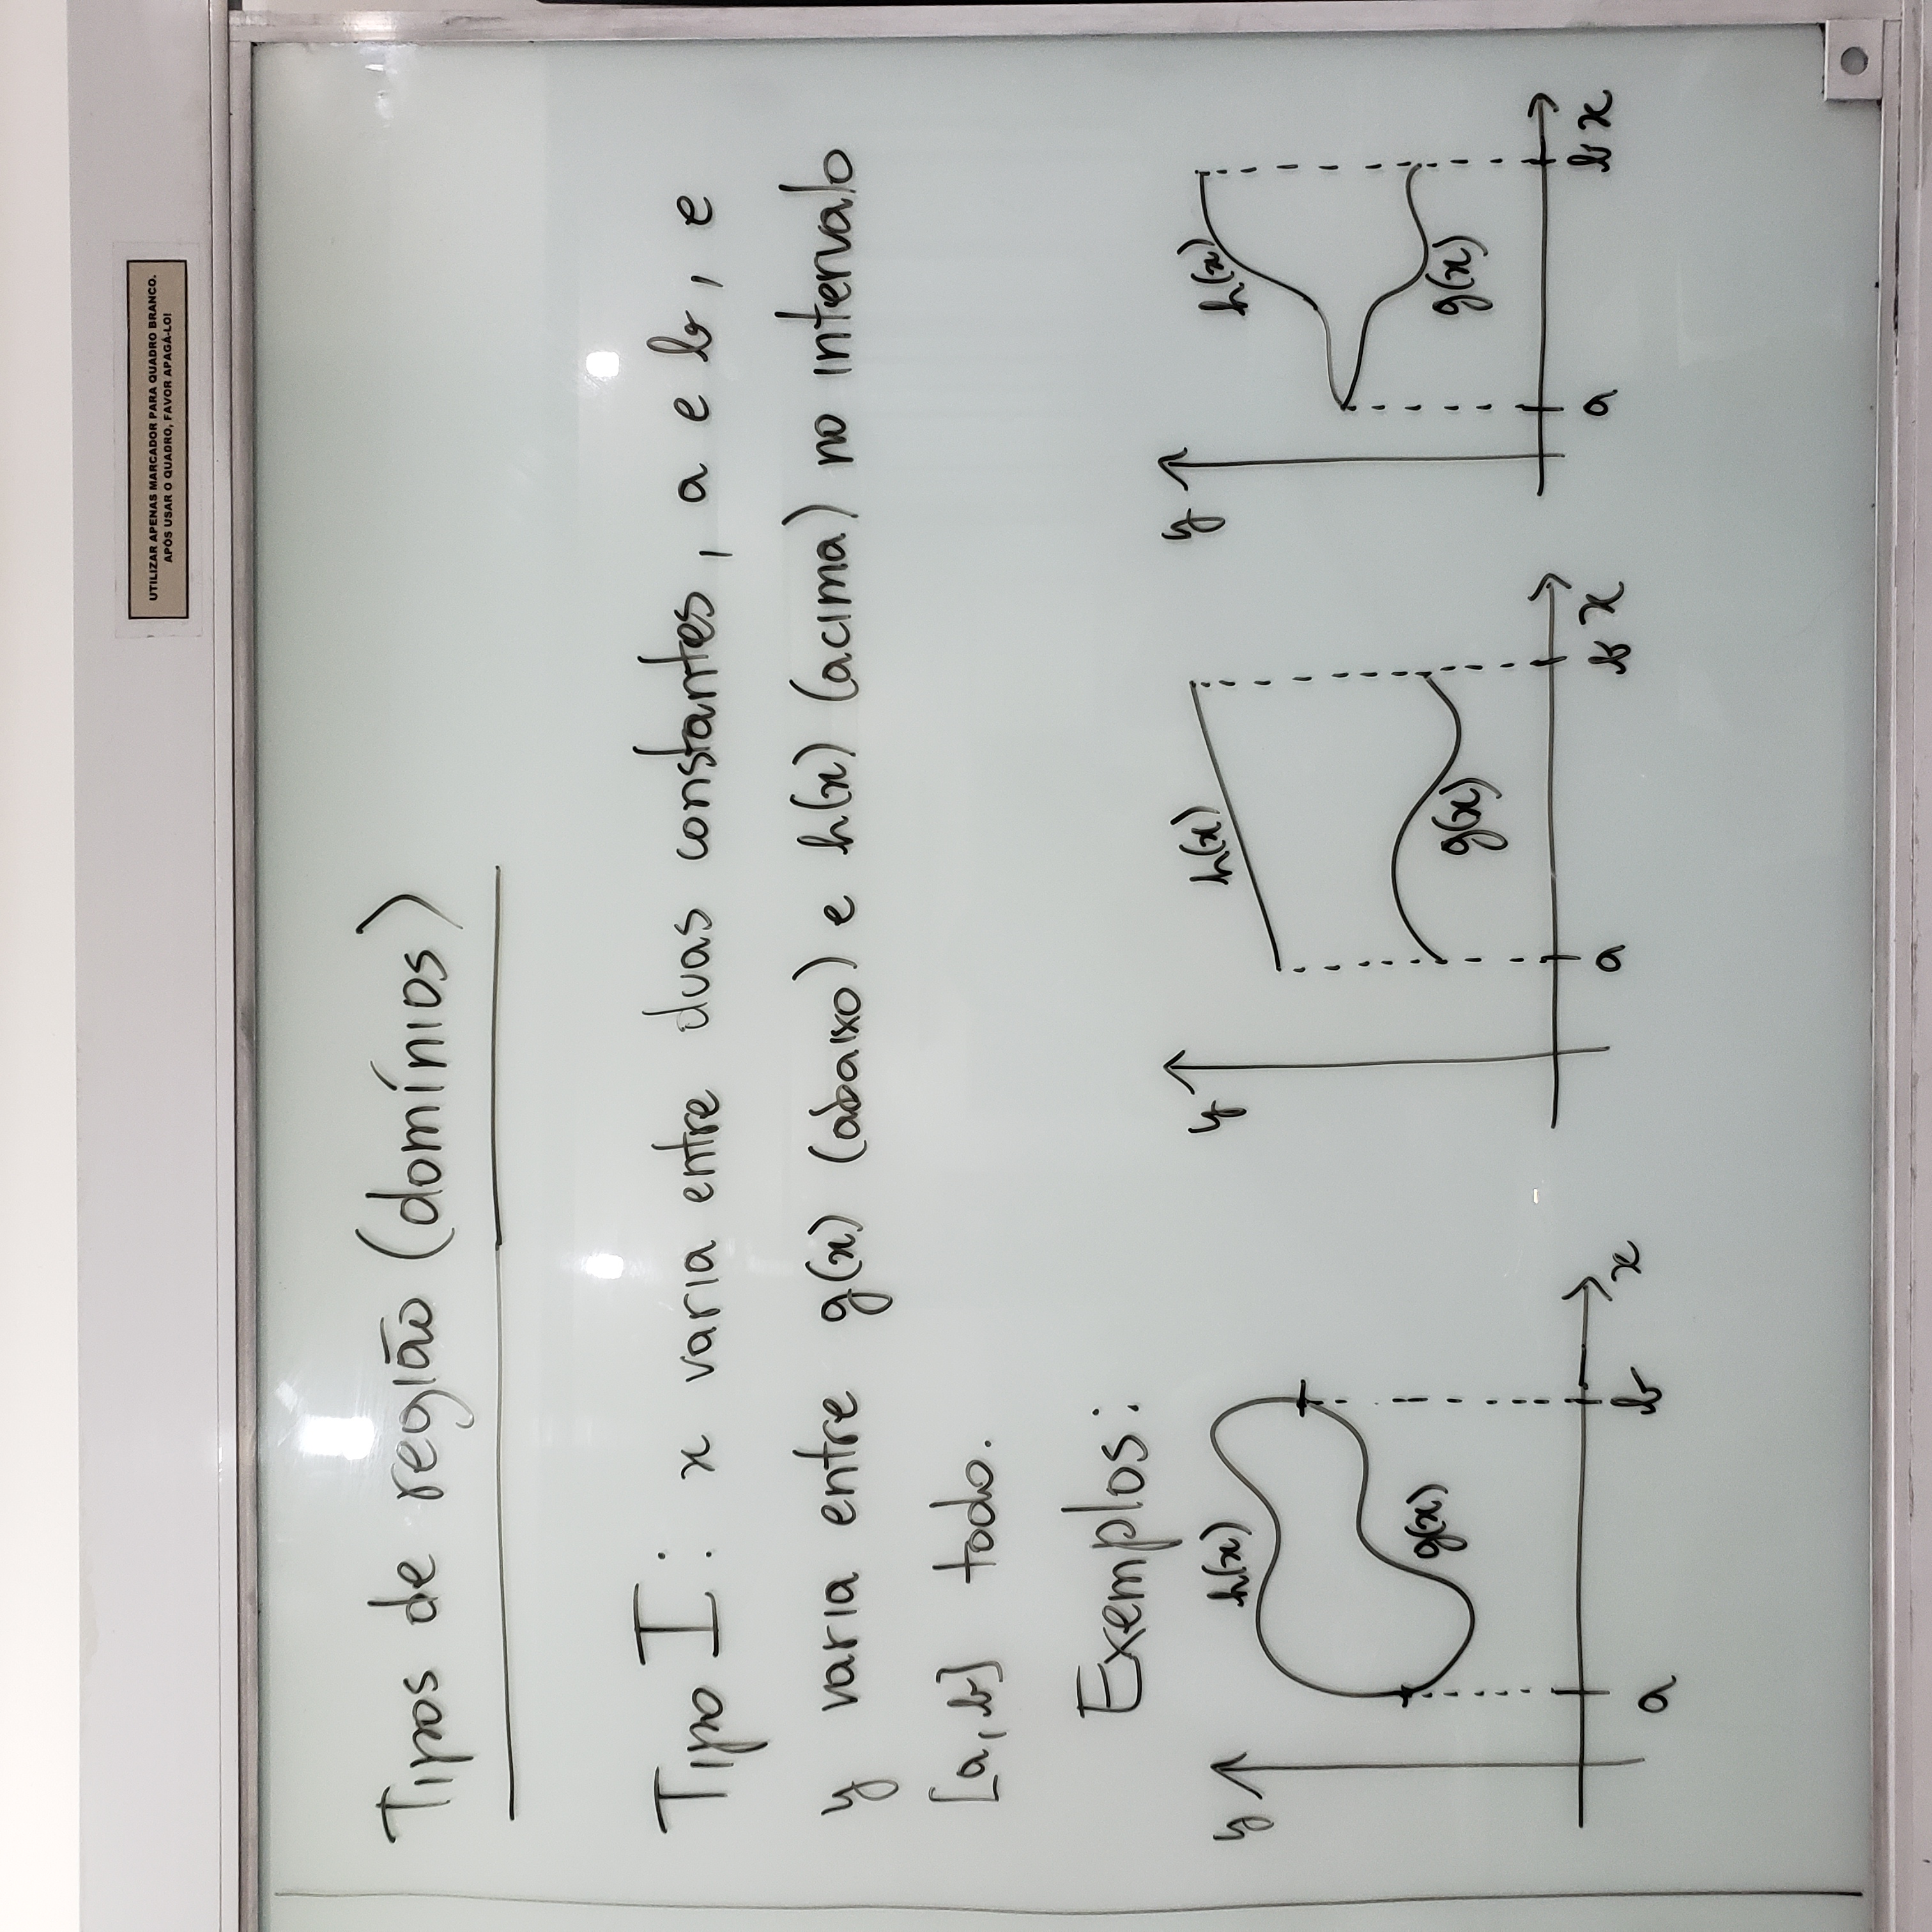 UTILIZAR APENAS MARCADOR PARA QUADRO BRANCO.
APÓS USAR O QUADRO, FAVOR APAGÁ-LO!
Tipos de região (domínios)
Tipo I: x varia entre duas constantes, a e b, e
y varia entre g(x) (abaixo) e h(x) (acima) no intervalo
[a,b] todo.
Exemplos:
y
h(x)
g(x)
a
b
x
y
h(x)
g(x)
a
b
x
y
h(x)
g(x)
a
b
x